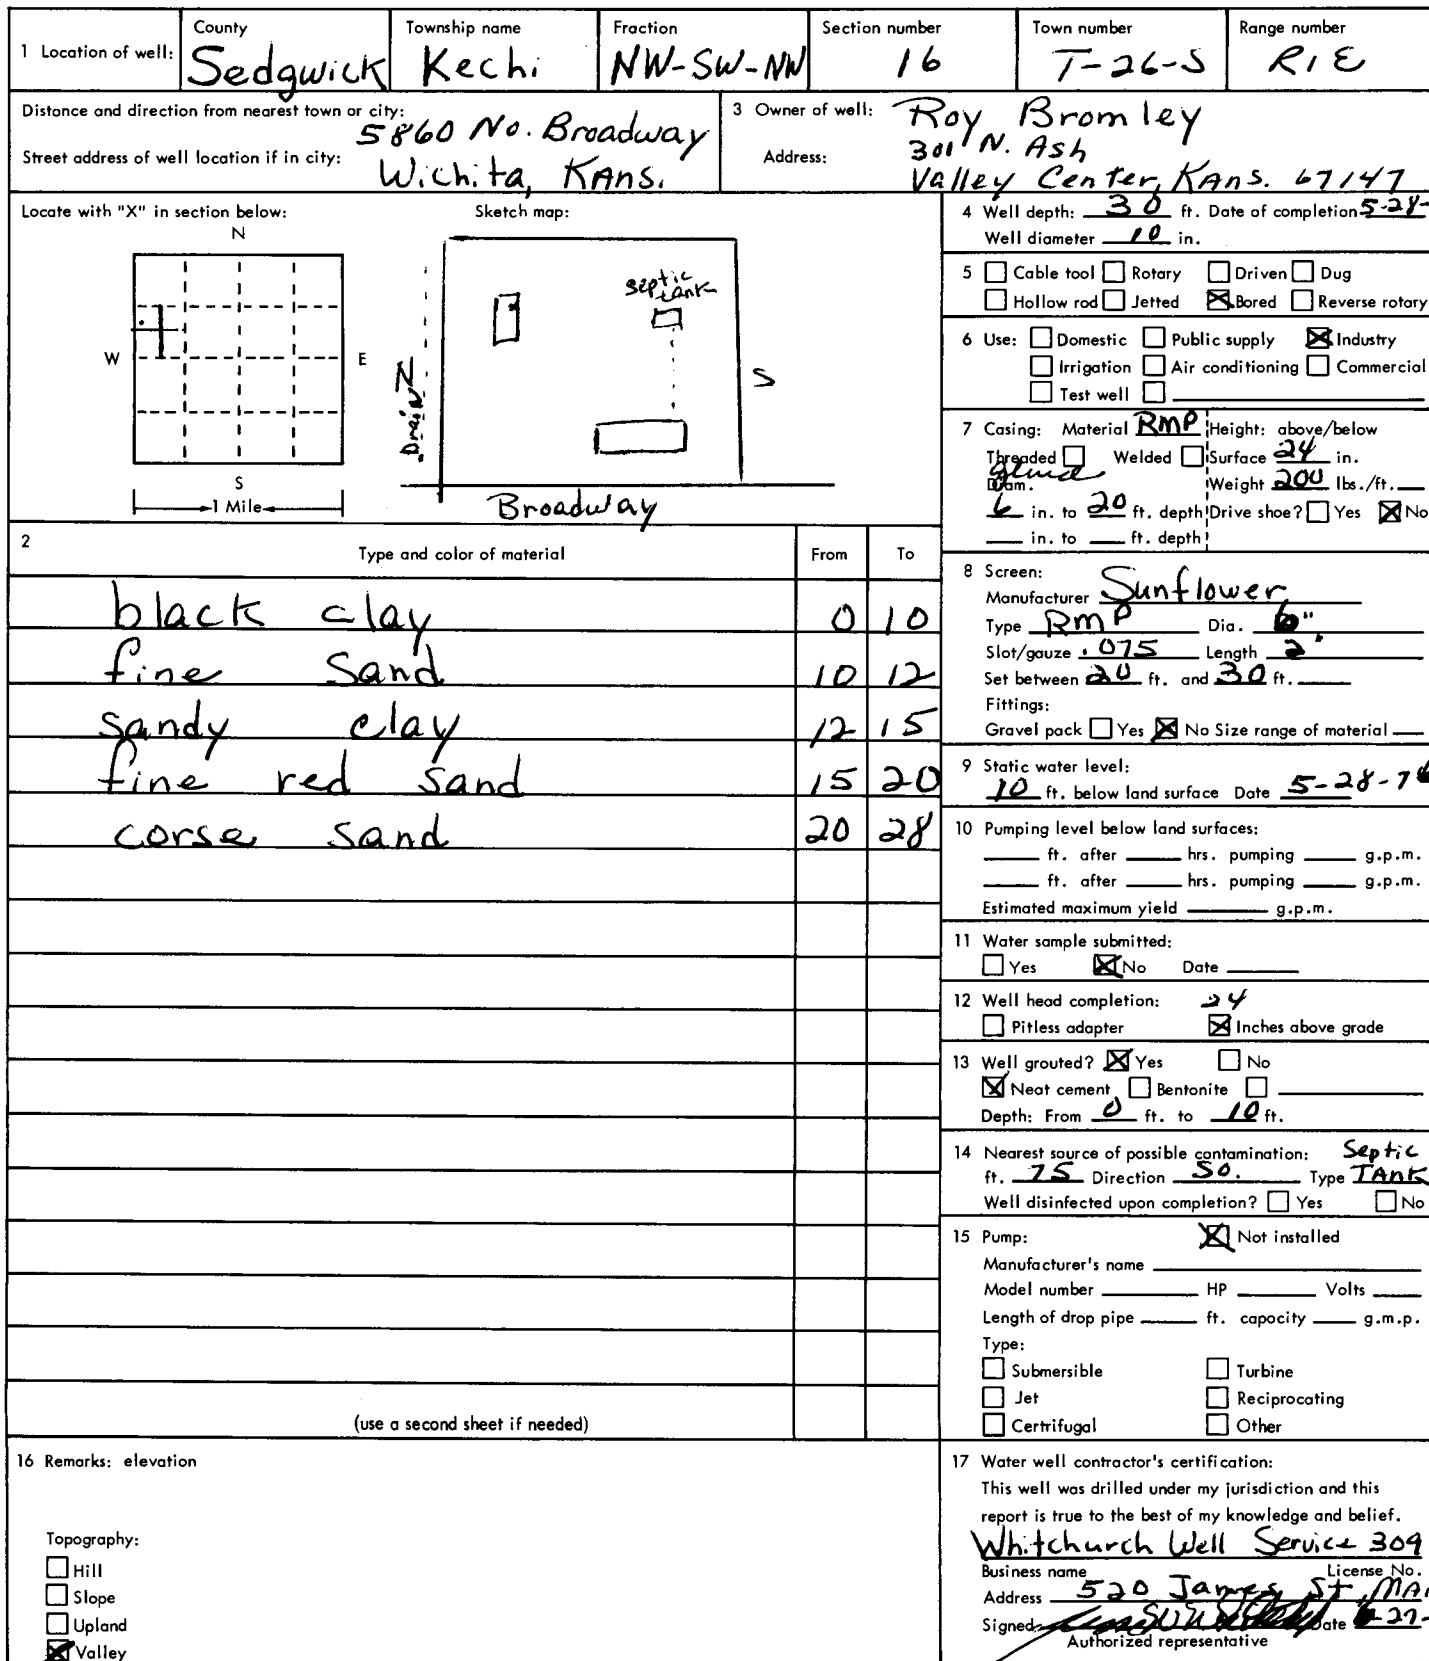 1 Location of well: County Sedgwick Township name Kechi Fraction NW-SW-NW Section number 16 Town number T-26-S Range number R1E
Distance and direction from nearest town or city: 5860 No. Broadway
Street address of well location if in city: Wichita, KAns.
3 Owner of well: Roy Bromley
Address: 301 N. Ash
Valley Center, KAns. 67147
Locate with "X" in section below:
N
W E
S
1 Mile
Sketch map:
septic tank
N
Drain
S
Broadway
4 Well depth: 30 ft. Date of completion 5-28-
Well diameter 10 in.
5 Cable tool Rotary Driven Dug
Hollow rod Jetted Bored Reverse rotary
6 Use: Domestic Public supply Industry
Irrigation Air conditioning Commercial
Test well
7 Casing: Material RMP Height: above/below
Threaded Welded Surface 24 in.
glued
Diam. Weight 200 lbs./ft.
6 in. to 20 ft. depth Drive shoe? Yes No
in. to ft. depth
2 Type and color of material From To
black clay 0 10
fine sand 10 12
sandy clay 12 15
fine red sand 15 20
corse sand 20 28
(use a second sheet if needed)
8 Screen:
Manufacturer Sunflower
Type RMP Dia. 6"
Slot/gauze .075 Length 2'
Set between 20 ft. and 30 ft.
Fittings:
Gravel pack Yes No Size range of material
9 Static water level:
10 ft. below land surface Date 5-28-76
10 Pumping level below land surfaces:
ft. after hrs. pumping g.p.m.
ft. after hrs. pumping g.p.m.
Estimated maximum yield g.p.m.
11 Water sample submitted:
Yes No Date
12 Well head completion: 24
Pitless adapter Inches above grade
13 Well grouted? Yes No
Neat cement Bentonite
Depth: From 0 ft. to 10 ft.
14 Nearest source of possible contamination: Septic
ft. 75 Direction So. Type TANK
Well disinfected upon completion? Yes No
15 Pump: Not installed
Manufacturer's name
Model number HP Volts
Length of drop pipe ft. capocity g.m.p.
Type:
Submersible Turbine
Jet Reciprocating
Certrifugal Other
16 Remarks: elevation
Topography:
Hill
Slope
Upland
Valley
17 Water well contractor's certification:
This well was drilled under my jurisdiction and this
report is true to the best of my knowledge and belief.
Whitchurch Well Service 309
Business name License No.
Address 520 James St
Signed Date 6-27-
Authorized representative